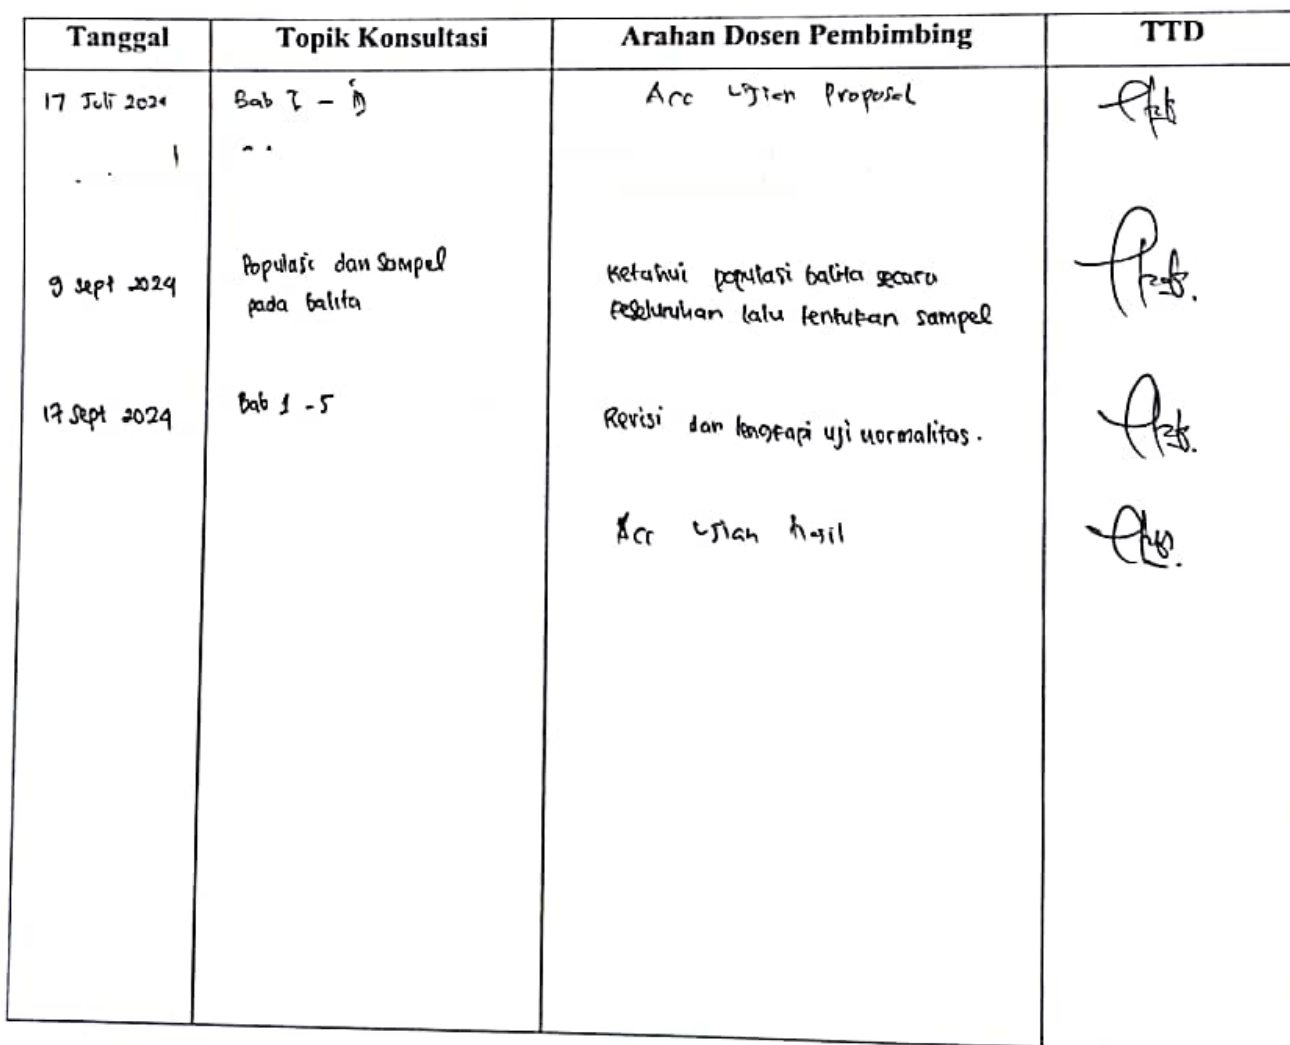 Tanggal Topik Konsultasi Arahan Dosen Pembimbing TTD
17 Juli 2024 Bab I - Acc Ujian Proposal
9 sept 2024 Populasi dan Sampel
pada balita
Ketahui populasi balita secara
keseluruhan lalu tentukan sampel
17 Sept 2024 Bab 1 - 5
Revisi dan lengkapi uji normalitas.
Acc Ujian hasil